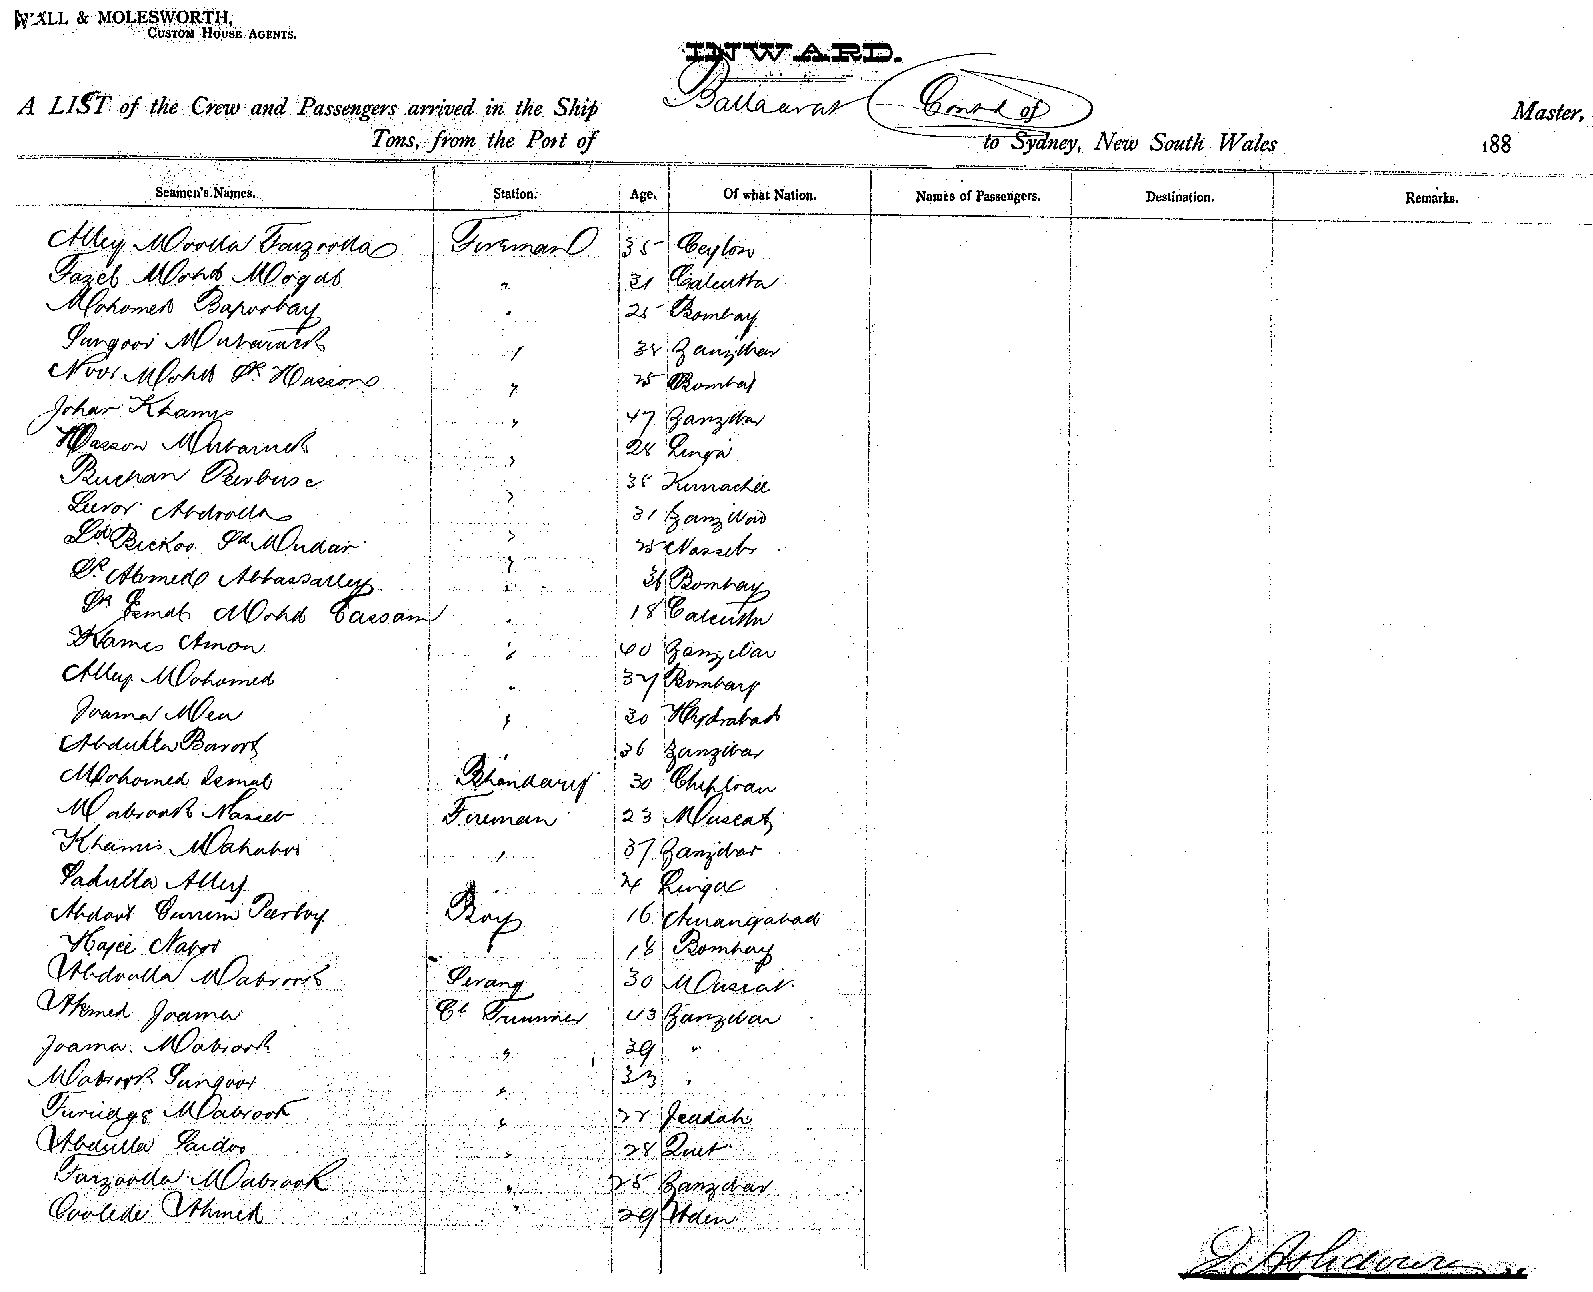 WALL & MOLESWORTH,
CUSTOM HOUSE AGENTS.
INWARD.
A LIST of the Crew and Passengers arrived in the Ship Ballaarat Contd of Master,
Tons, from the Port of to Sydney, New South Wales 188
Seamen's Names. Station. Age. Of what Nation. Names of Passengers. Destination. Remarks.
Alley Moolla Farzoolla Fireman 35 Ceylon
Fazel Mohd Mogal " 31 Calcutta
Mohomed Bapoobay " 25 Bombay
Sungoor Mubarack " 38 Zanzibar
Noor Mohd Sk Hassan " 25 Bombay
Johar Khamis " 47 Zanzibar
Hasson Mubaruck " 28 Linga
Buchan Peerbuse " 38 Kurrachee
Abdoolla " 31 Zanzibar
Mudar " 25
Sk Ahmed Abbassalley " 36 Bombay
Sk Esmal Mohd Cassam " 18 Calcutta
Khamis Amon " 40 Zanzibar
Alley Mohomed " 37 Bombay
Joama Meu " 30 Hydrabad
Abdulla Baroot " 36 Zanzibar
Mohomed Esmal Bhandary 30 Chiploan
Mabrook Nasseeb Fireman 23 Muscat
Khamis Mahaboo " 37 Zanzibar
Sadulla Alley " Linga
Abdool Currim Peerboy Boy 16 Aurangabad
Hajee Naboo 18 Bombay
Abdoulla Mabrook Serang 30 Muscat
Ahmed Joama Cl Trimmer 43 Zanzibar
Joama Mabrook " 39 "
Mabrook Sungoor " 33 "
Mabrook " 22 Jeddah
Abdulla Saidoo " 28
Farzoolla Mabrook " 25 Zanzibar
Ahmed " 29 Aden
Ashdown